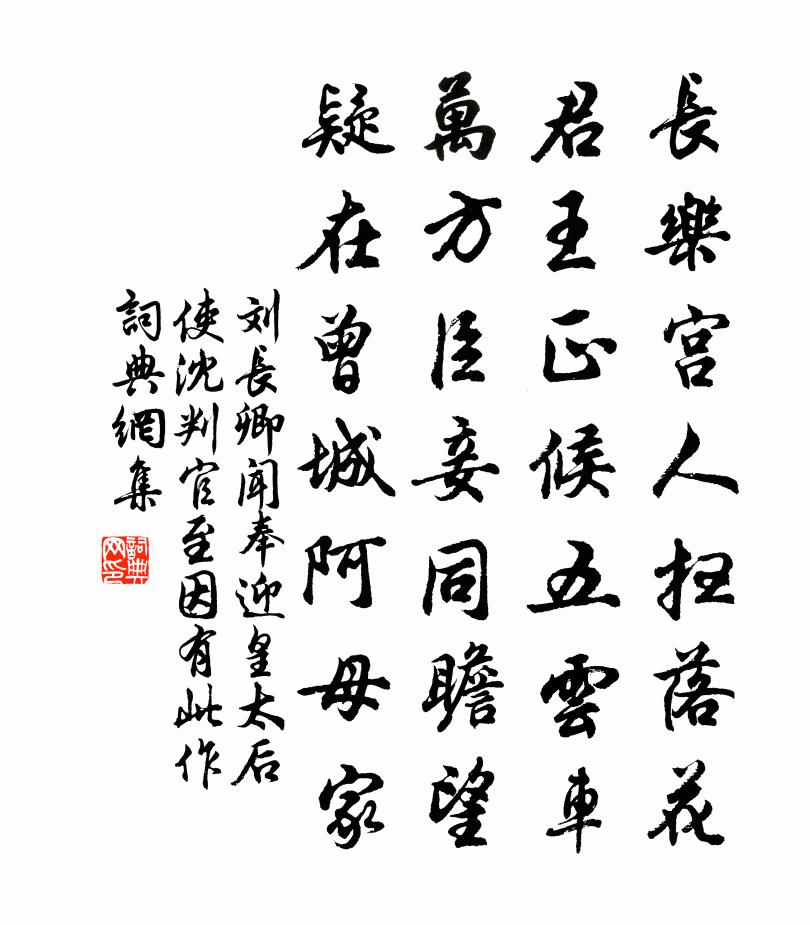 長樂宮人扫落花
君王正候五雲車
萬方臣妾同瞻望
疑在曾城阿母家
刘長卿闻奉迎皇太后
使沈判官至因有此作
詞典網集
詞典网印